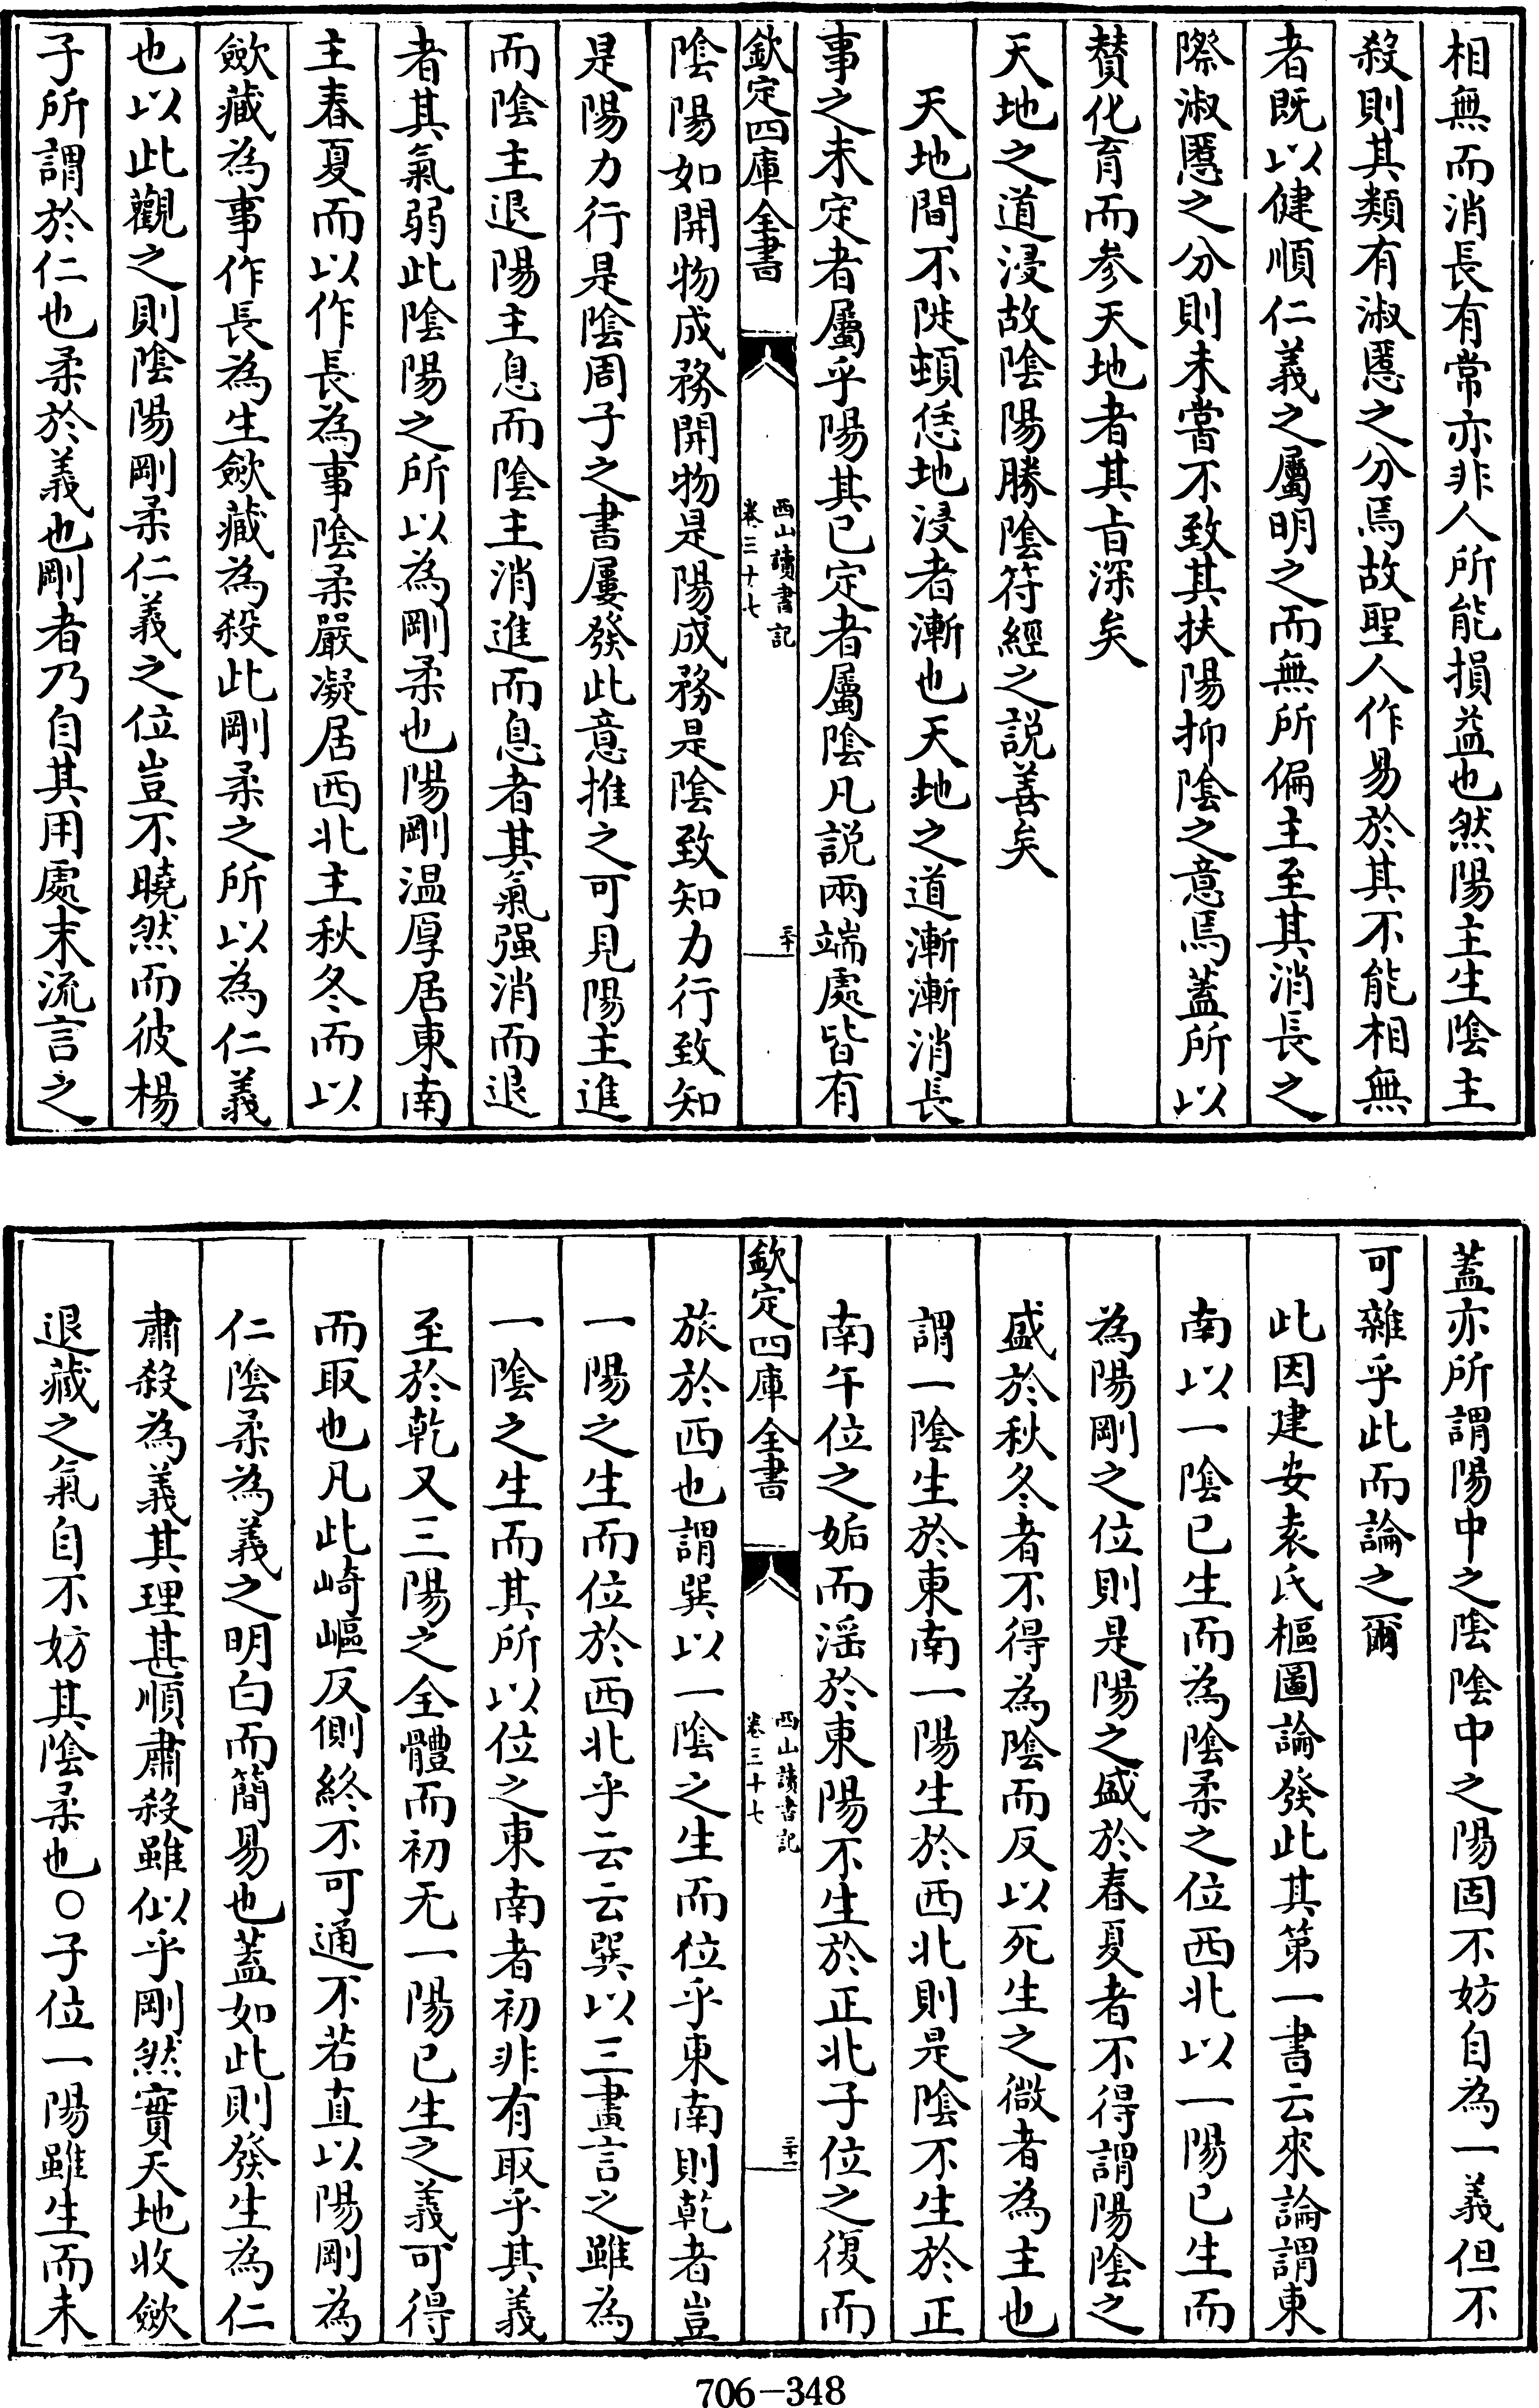 相無而消長有常亦非人所能損益也然陽主生陰主
殺則其類有淑慝之分焉故聖人作易於其不能相無
者既以健順仁義之屬明之而無所偏主至其消長之
際淑慝之分則未嘗不致其扶陽抑陰之意焉蓋所以
賛化育而參天地者其㫖深矣
天地之道浸故陰陽勝陰符經之説善矣
天地間不陡頓恁地浸者漸也天地之道漸漸消長
事之未定者屬乎陽其已定者屬陰凡説兩端處皆有
欽定四庫全書
西山讀書記
卷三十七
三十
陰陽如開物成務開物是陽成務是陰致知力行致知
是陽力行是陰周子之書屢發此意推之可見陽主進
而陰主退陽主息而陰主消進而息者其氣强消而退
者其氣弱此陰陽之所以為剛柔也陽剛温厚居東南
主春夏而以作長為事陰柔嚴凝居西北主秋冬而以
歛藏為事作長為生歛藏為殺此剛柔之所以為仁義
也以此觀之則陰陽剛柔仁義之位豈不曉然而彼楊
子所謂於仁也柔於義也剛者乃自其用處末流言之
蓋亦所謂陽中之陰陰中之陽固不妨自為一義但不
可雜乎此而論之爾
此因建安袁氏樞圖論發此其第一書云來論謂東
南以一陰已生而為陰柔之位西北以一陽已生而
為陽剛之位則是陽之盛於春夏者不得謂陽陰之
盛於秋冬者不得為陰而反以死生之微者為主也
謂一陰生於東南一陽生於西北則是陰不生於正
南午位之姤而滛於東陽不生於正北子位之復而
欽定四庫全書
西山讀書記
卷三十七
三十一
旅於西也謂巽以一陰之生而位乎東南則乾者豈
一陽之生而位於西北乎云云巽以三畫言之雖為
一陰之生而其所以位之東南者初非有取乎其義
至於乾又三陽之全體而初无一陽已生之義可得
而取也凡此崎嶇反側終不可通不若直以陽剛為
仁陰柔為義之明白而簡易也蓋如此則發生為仁
肅殺為義其理甚順肅殺雖似乎剛然實天地收歛
退藏之氣自不妨其陰柔也○子位一陽雖生而未
706-348